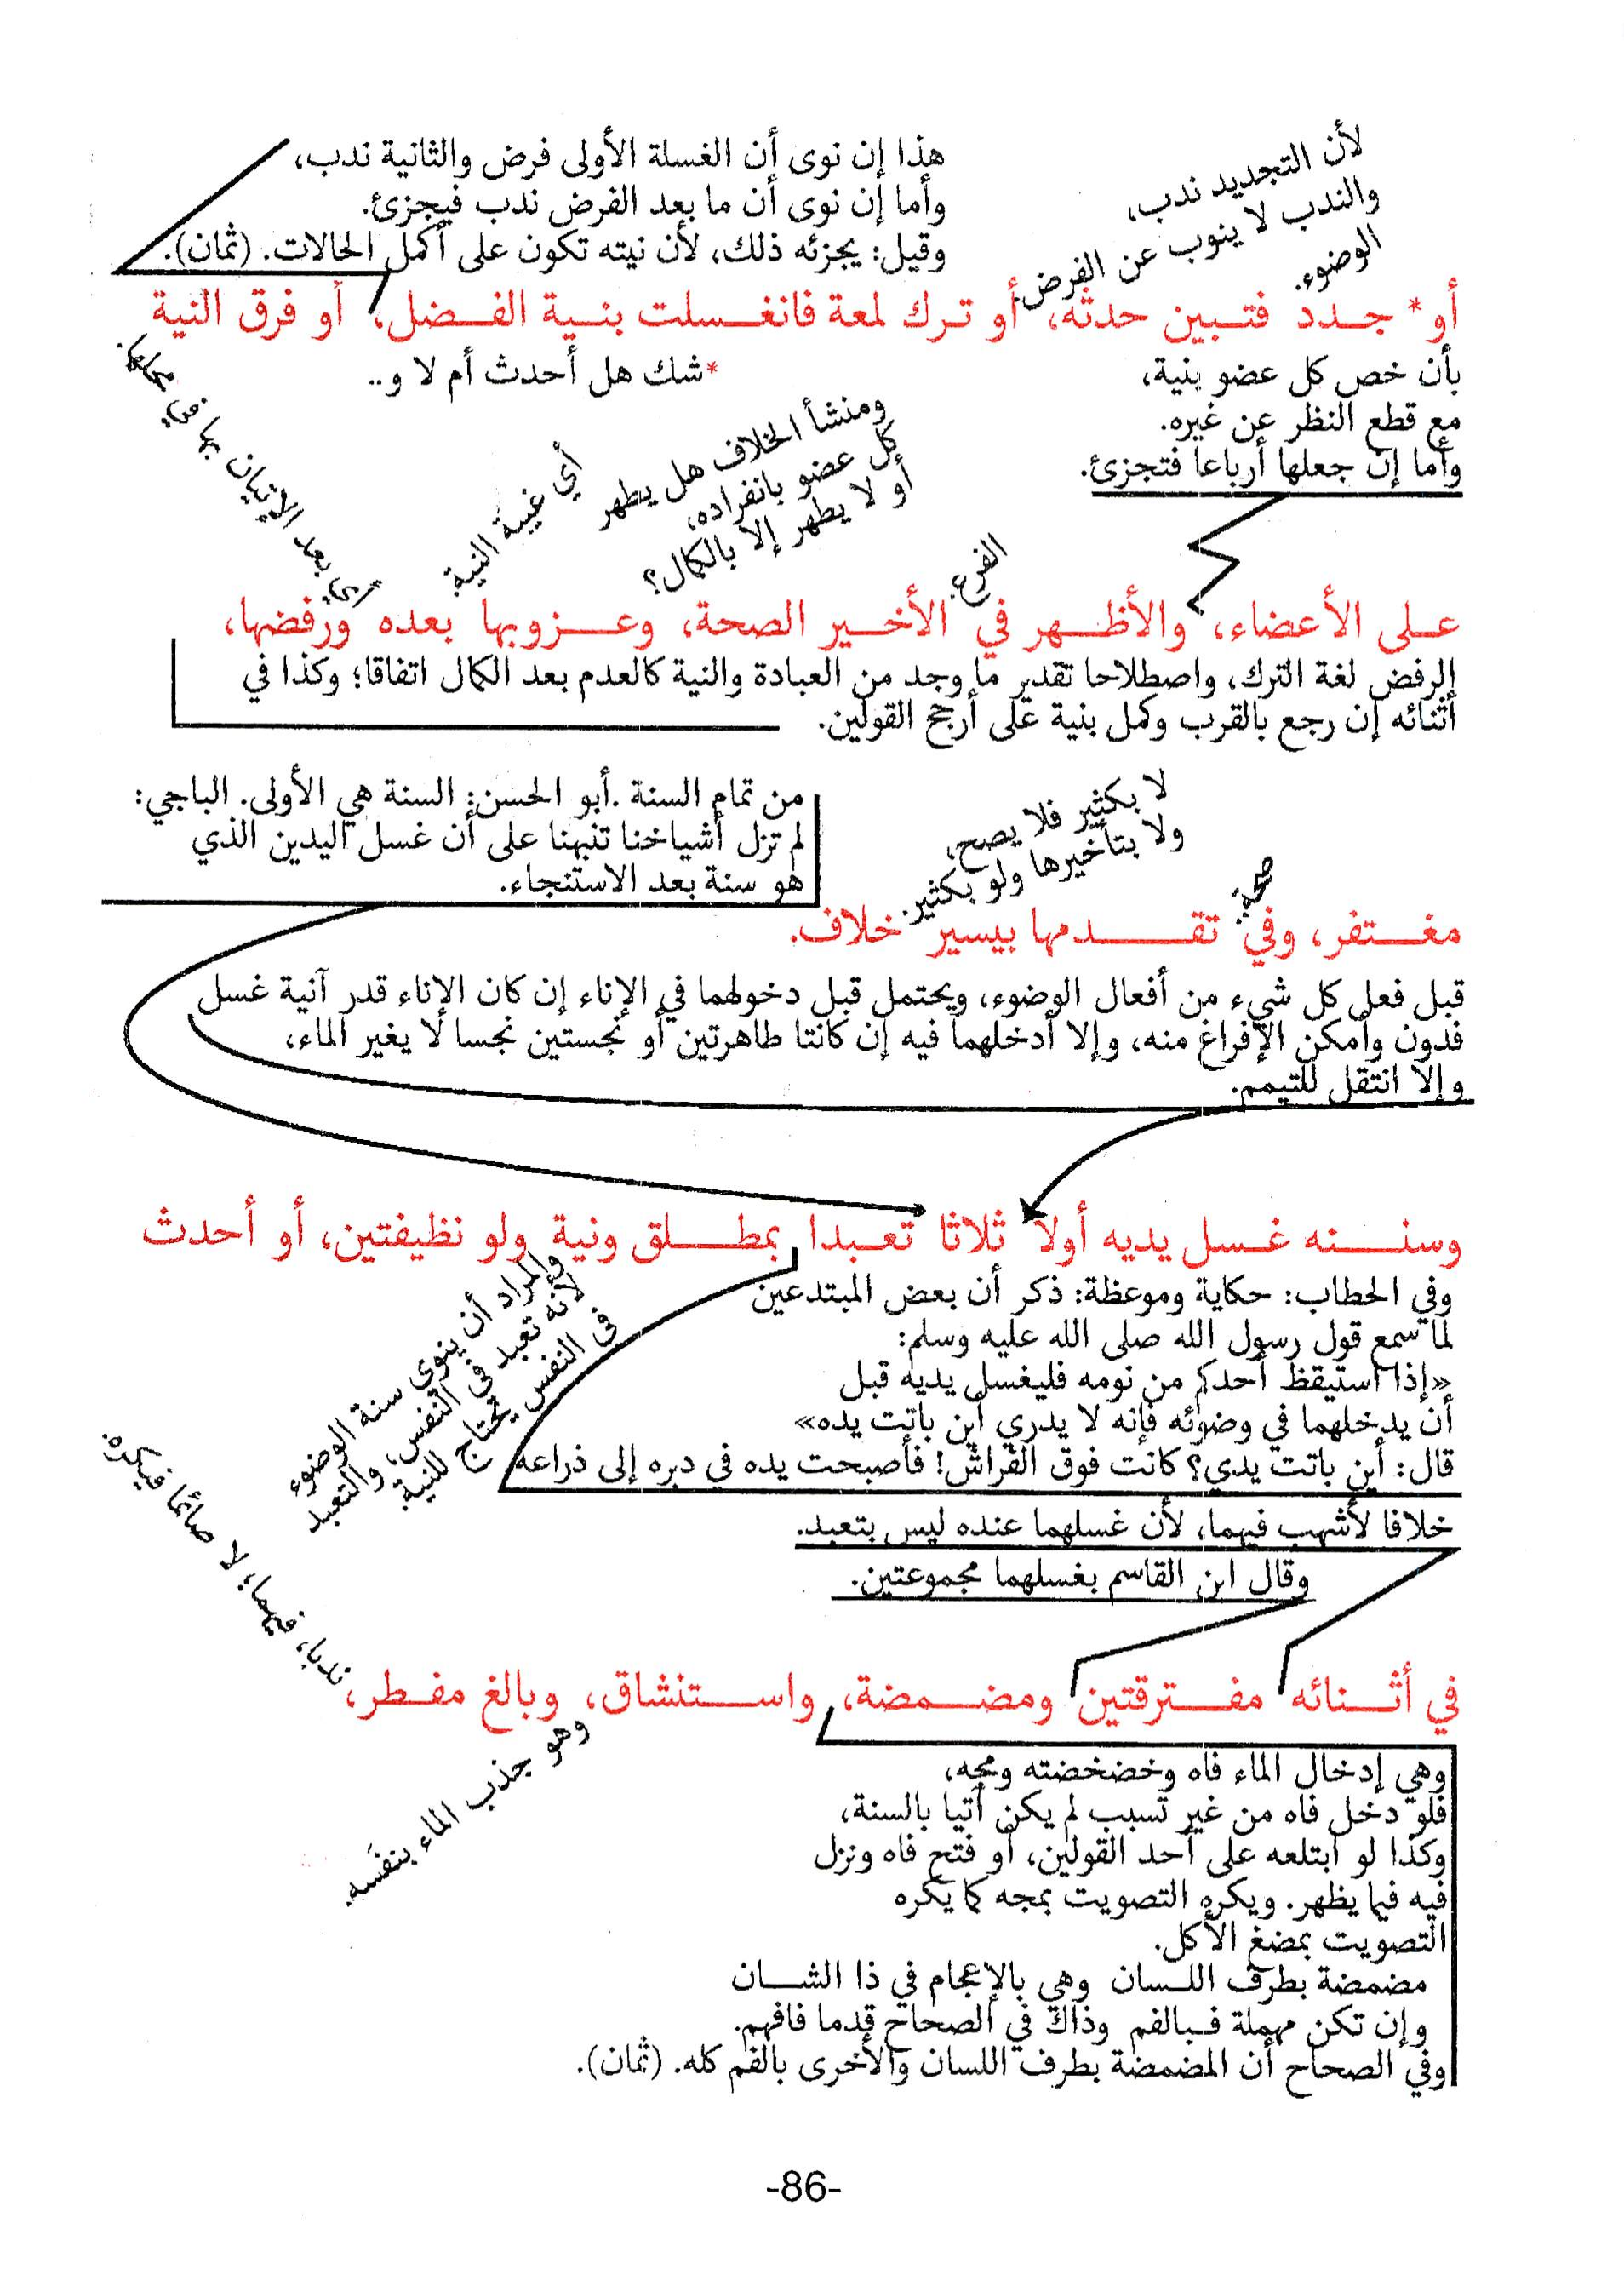 هذا إن نوى أن الغسلة الأولى فرض والثانية ندب،
وأما إن نوى أن ما بعد الفرض ندب فيجزئ.
وقيل: يجزئه ذلك، لأن نيته تكون على أكمل الحالات. (ثمان).
لأن التجديد ندب،
والندب لا ينوب عن الفرض.
الوضوء.
أو* جدد فتبين حدثه، أو ترك لمعة فانغسلت بنية الفضل، أو فرق النية
بأن خص كل عضو بنية،
مع قطع النظر عن غيره.
وأما إن جعلها أرباعا فتجزئ.
*شك هل أحدث أم لا و..
ومنشأ الخلاف هل يطهر
كل عضو بانفراده،
أو لا يطهر إلا بالكمال؟
أي غيبة النية.
أي بعد الإتيان بها في محلها.
الفرع.
على الأعضاء، والأظهر في الأخير الصحة، وعزوبها بعده ورفضها،
الرفض لغة الترك، واصطلاحا تقدير ما وجد من العبادة والنية كالعدم بعد الكمال اتفاقا؛ وكذا في
أثنائه إن رجع بالقرب وكمل بنية على أرجح القولين.
من تمام السنة .أبو الحسن: السنة هي الأولى. الباجي:
لم تزل أشياخنا تنبهنا على أن غسل اليدين الذي
هو سنة بعد الاستنجاء.
لا بكثير فلا يصح،
ولا بتأخيرها ولو بكثير.
صحة.
مغتفر، وفي تقدمها بيسير خلاف.
قبل فعل كل شيء من أفعال الوضوء، ويحتمل قبل دخولهما في الإناء إن كان الإناء قدر آنية غسل
فدون وأمكن الإفراغ منه، وإلا أدخلهما فيه إن كانتا طاهرتين أو نجستين نجسا لا يغير الماء،
وإلا انتقل للتيمم.
وسننه غسل يديه أولا ثلاثا تعبدا بمطلق ونية ولو نظيفتين، أو أحدث
وفي الحطاب: حكاية وموعظة: ذكر أن بعض المبتدعين
لما سمع قول رسول الله صلى الله عليه وسلم:
«إذا استيقظ أحدكم من نومه فليغسل يديه قبل
أن يدخلهما في وضوئه فإنه لا يدري أين باتت يده»
قال: أين باتت يدي؟ كانت فوق الفراش! فأصبحت يده في دبره إلى ذراعه
والمراد أن ينوي سنة الوضوء
لأنه تعبد في النفس، والتعبد
في النفس يحتاج للنية.
خلافا لأشهب فيهما، لأن غسلهما عنده ليس بتعبد.
وقال ابن القاسم بغسلهما مجموعتين.
ندبا، فيهما، لا صائما فيكره.
في أثنائه مفترقتين ومضمضة، واستنشاق، وبالغ مفطر،
وهو جذب الماء بنفَسه.
وهي إدخال الماء فاه وخضخضته ومجه،
فلو دخل فاه من غير تسبب لم يكن آتيا بالسنة،
وكذا لو ابتلعه على أحد القولين، أو فتح فاه ونزل
فيه فيما يظهر. ويكره التصويت بمجه كما يكره
التصويت بمضغ الأكل.
مضمضة بطرف اللسان وهي بالإعجام في ذا الشان
وإن تكن مهملة فبالفم وذاك في الصحاح قدما فافهم.
وفي الصحاح أن المضمضة بطرف اللسان والأخرى بالفم كله. (ثمان).
-86-